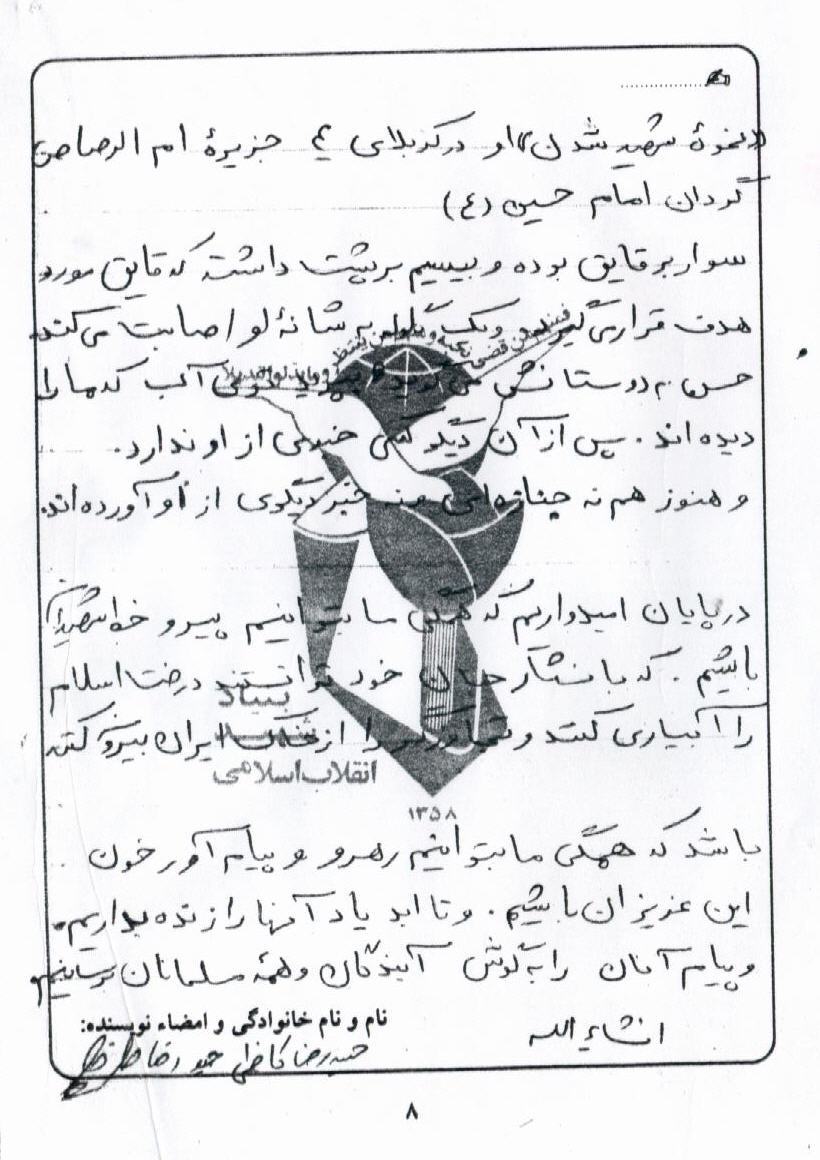 «نحوهٔ شهید شدن» او در کربلای ٤ جزیرهٔ ام الرصاص
گردان امام حسین (ع)
سوار بر قایق بوده و بیسیم بر پشت داشته که قایق مورد
هدف قرار می گیرد و یک گلوله به شانهٔ او اصابت می کند.
حسن به دوستانش می گوید بپرید توی آب که ما را
دیده اند. پس از آن دیگر کسی خبری از او ندارد.
و هنوز هم نه جنازه ای و نه خبر دیگری از او آورده اند.
در پایان امیدواریم که همگی ما بتوانیم پیرو خط شهیدان
باشیم. که با نثار جان خود توانستند درخت اسلام
را آبیاری کنند و متجاوزگر را از خاک ایران بیرون کنند
بنیاد
انقلاب اسلامی
۱۳۵۸
باشد که همگی ما بتوانیم رهرو و پیام آور خون
این عزیزان باشیم. و تا ابد یاد آنها را زنده بداریم.
و پیام آنان را به گوش آیندگان و همهٔ مسلمانان برسانیم.
انشاء الله
نام و نام خانوادگی و امضاء نویسنده:
حمیدرضا کاظمی
۸